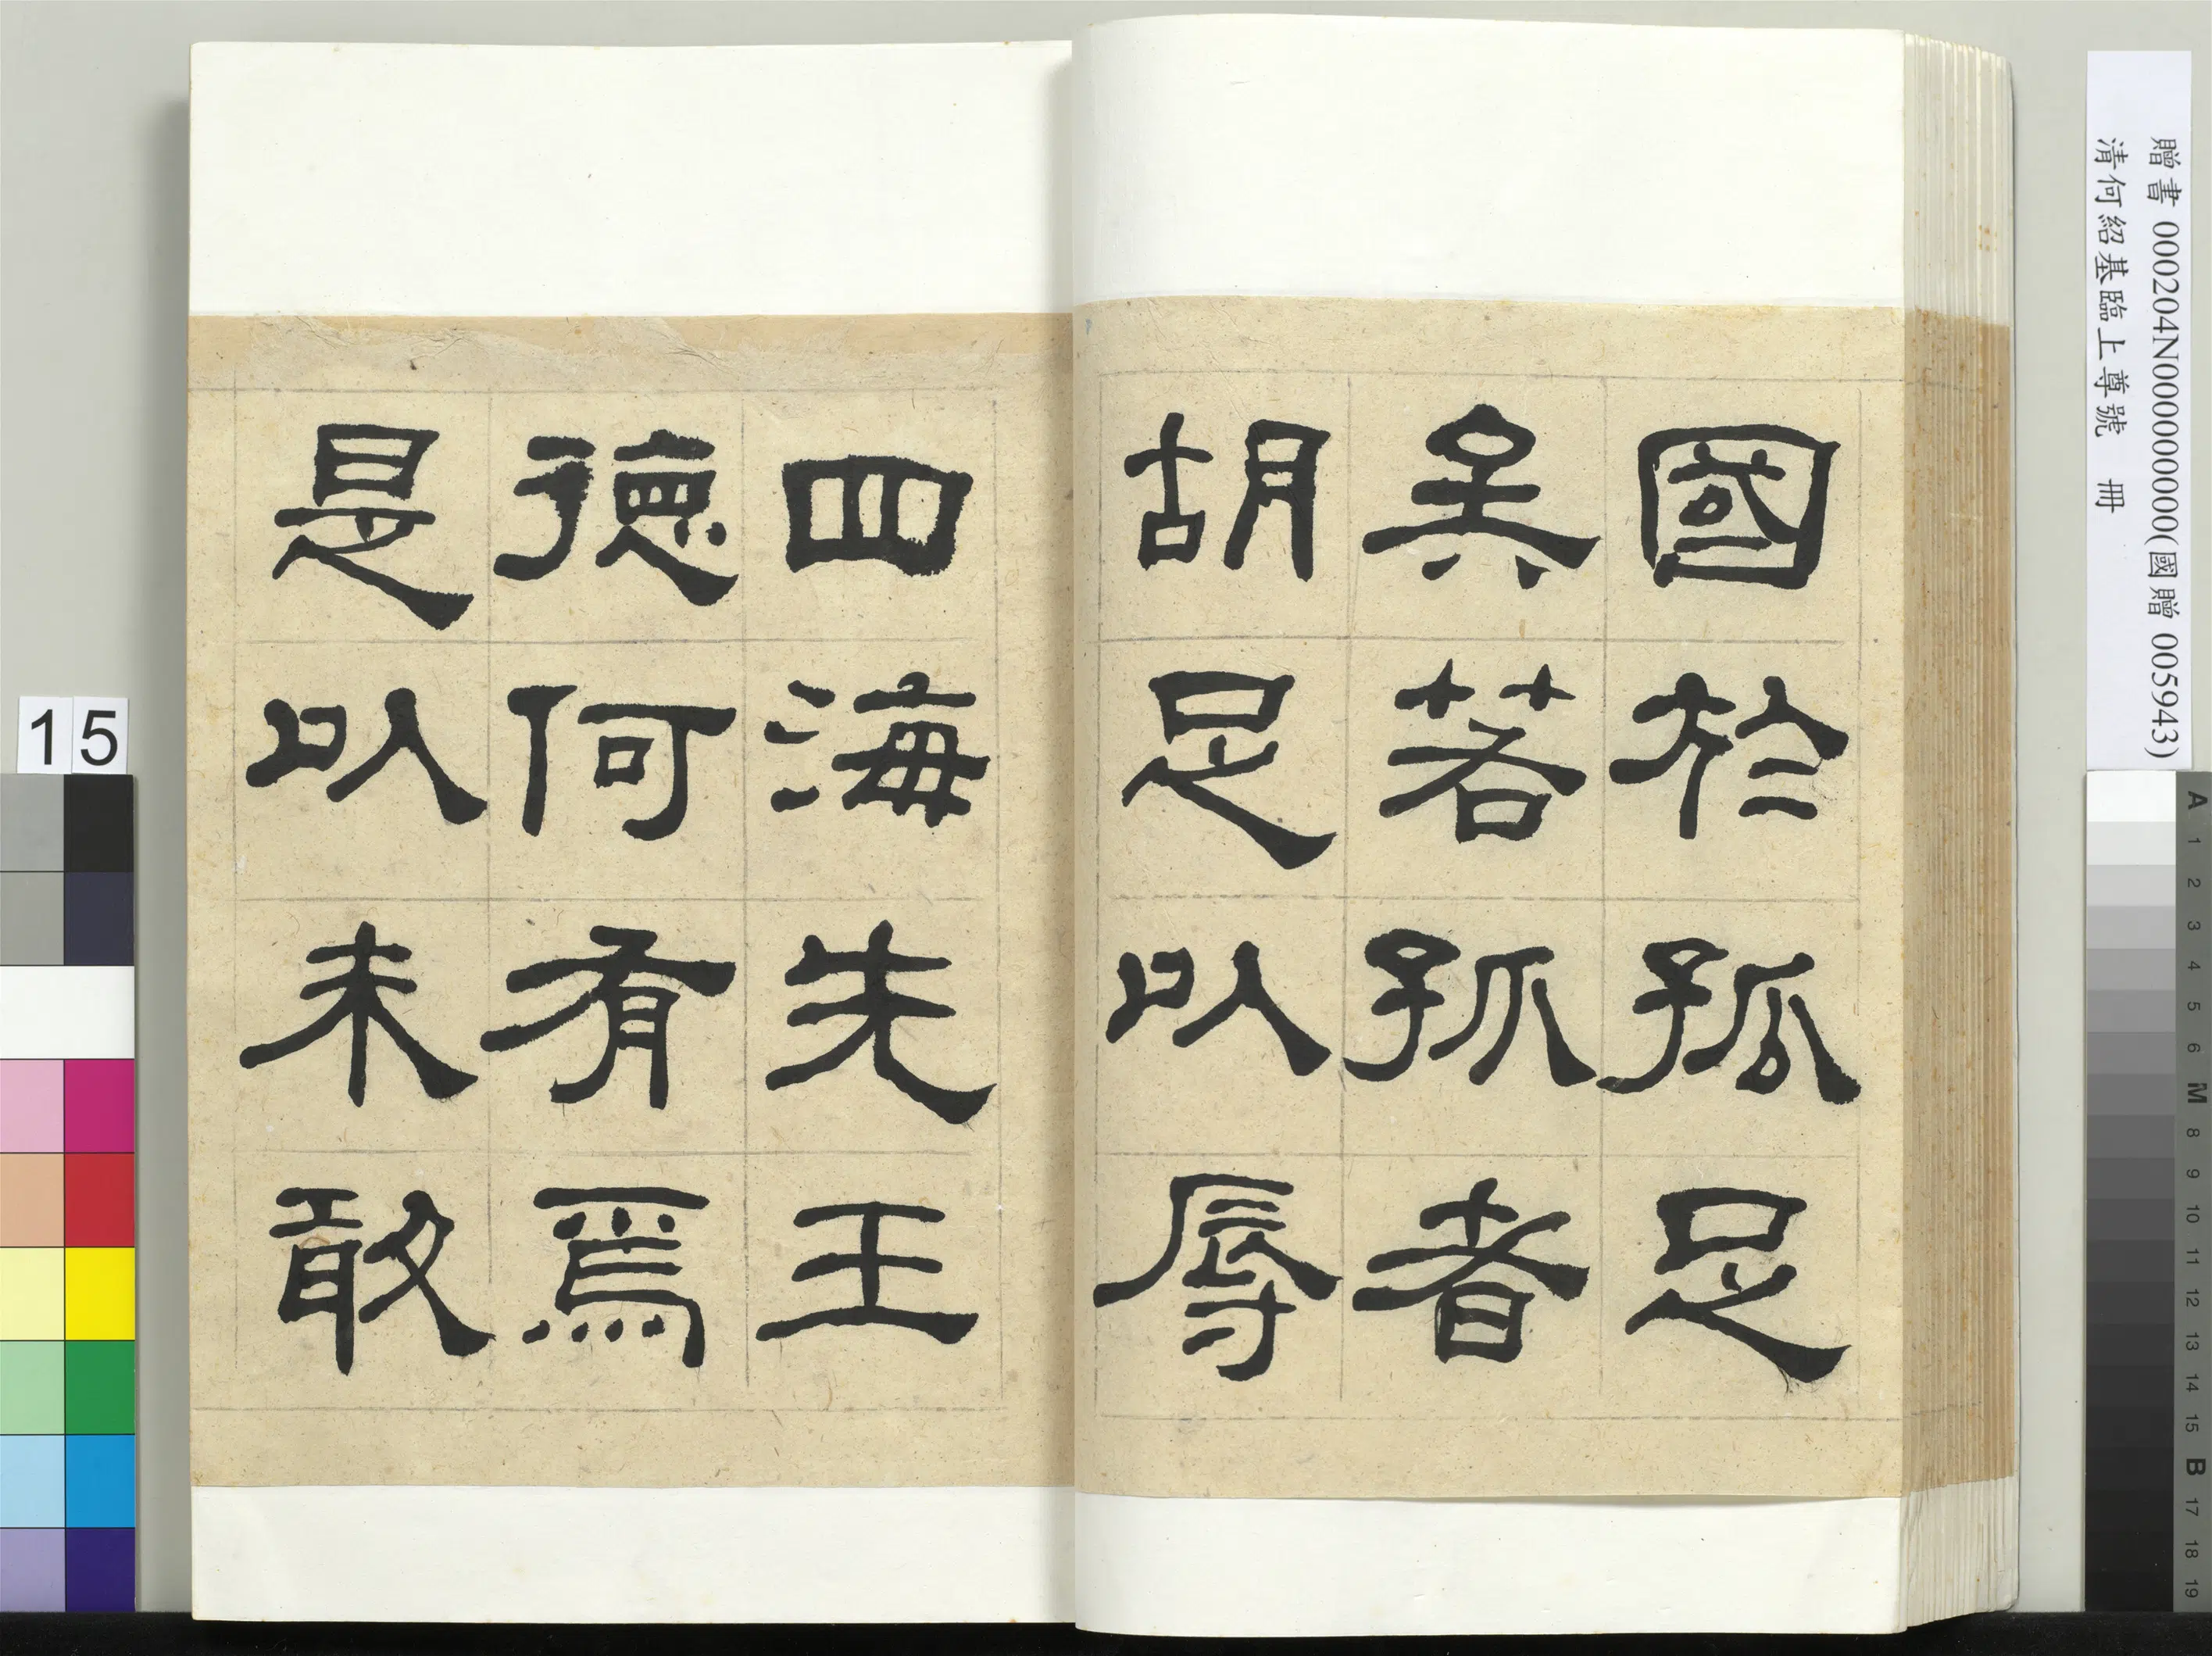 國於孤足
矣若孤者
胡足以辱
四海先王
德何有焉
是以未敢
贈書 000204N000000000(國贈 005943)
清何紹基臨上尊號 冊
15
A 1 2 3 4 5 6 M 8 9 10 11 12 13 14 15 B 17 18 19